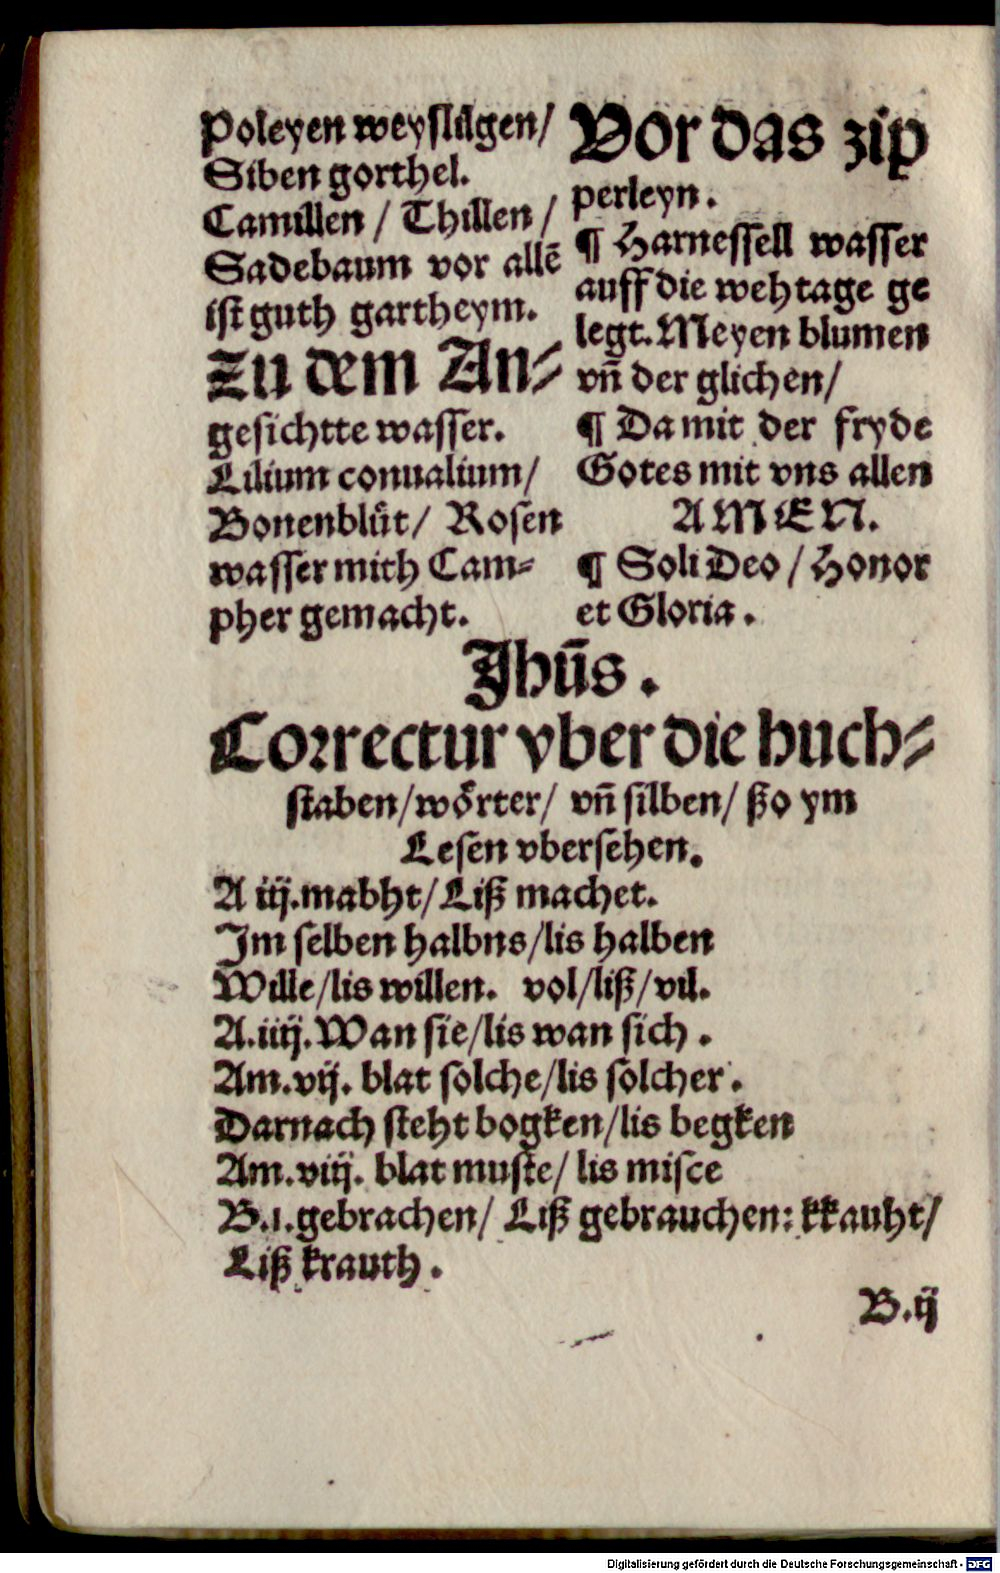 Poleyen weyslilgen/
Siben gorthel.
Camillen / Thillen /
Sadebaum vor allē
ist guth gartheym.
Zu dem An⸗
gesichtte wasser.
Lilium conualium/
Bonenblüt/ Rosen
wasser mith Cam⸗
pher gemacht.
Vor das zip
perleyn.
¶ Harnessell wasser
auff die wehtage ge
legt. Meyen blumen
vñ der glichen/
¶ Da mit der fryde
Gotes mit vns allen
AMEN.
¶ Soli Deo / Honor
et Gloria.
Jhūs.
Correctur vber die buch⸗
staben/wörter/ vñ silben/ ßo ym
Lesen vbersehen.
A iij. mabht/ Liß machet.
Jm selben halbns/lis halben
Wille/lis willen. vol/liß/vil.
A.iiij. Wan sie/lis wan sich.
Am.vij. blat solche/lis solcher.
Darnach steht bogken/lis begken
Am.viij. blat muste/ lis misce
B.1.gebrachen/ Liß gebrauchen: kkauht/
Liß krauth.
B.ij
Digitalisierung gefördert durch die Deutsche Forschungsgemeinschaft - DFG